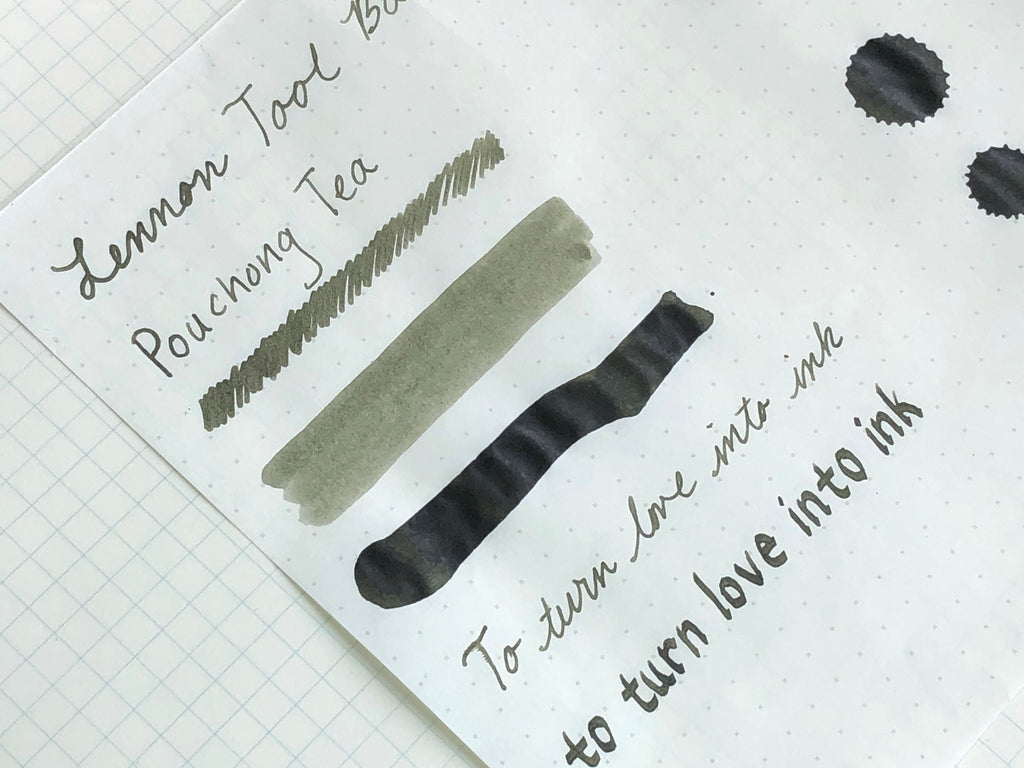 Lennon Tool
Pouchong Tea
To turn love into ink
to turn love into ink